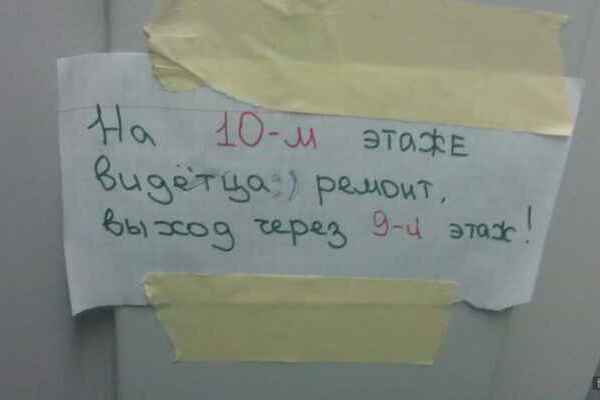 На 10-м этаже
видётца:) ремонт,
выход через 9-й этаж!